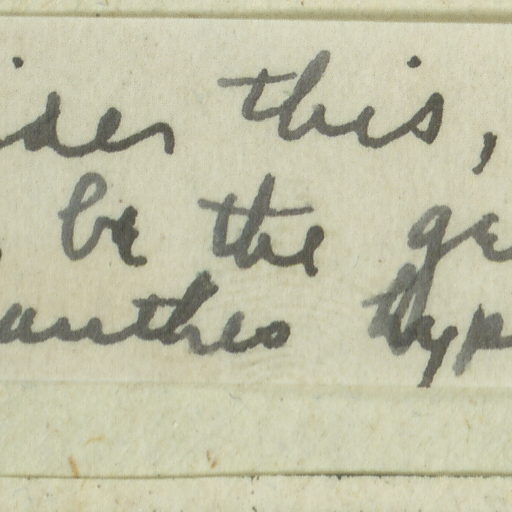 ider this,
be the ge
anthes hyp